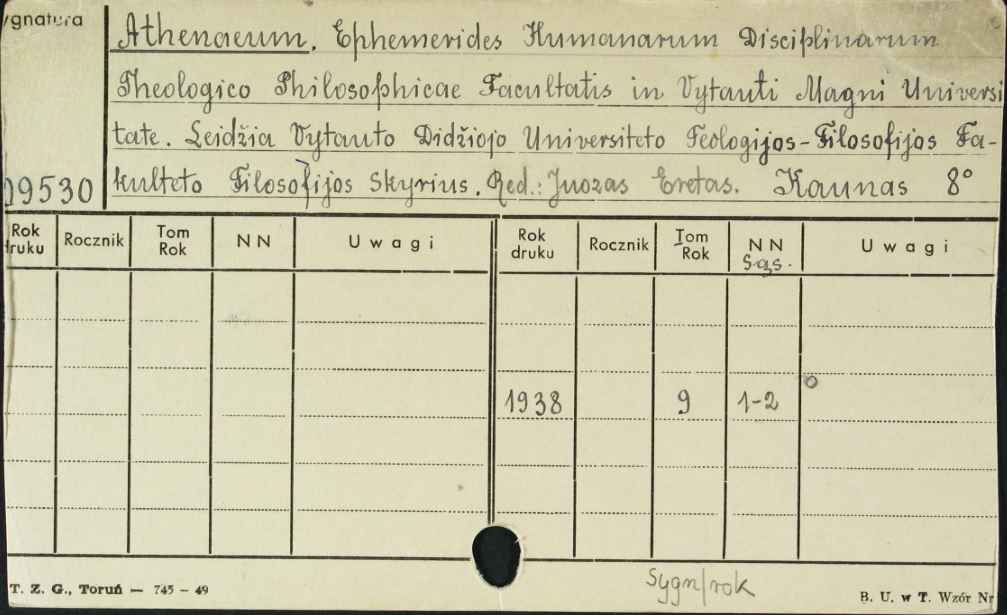 ygnatura
Athenaeum. Ephemerides Humanarum Disciplinarum
Theologico Philosophicae Facultatis in Vytauti Magni Universi
tate. Leidžia Vytauto Didžiojo Universiteto Teologijos-Filosofijos Fa-
09530 kulteto Filosofijos Skyrius. Red.: Juozas Eretas. Kaunas 8°
Rok druku Rocznik Tom Rok NN Uwagi Rok druku Rocznik Tom Rok NN Sąs. Uwagi
1938 9 1-2
Sygn/rok
T. Z. G., Toruń — 745 - 49 B. U. w T. Wzór Nr